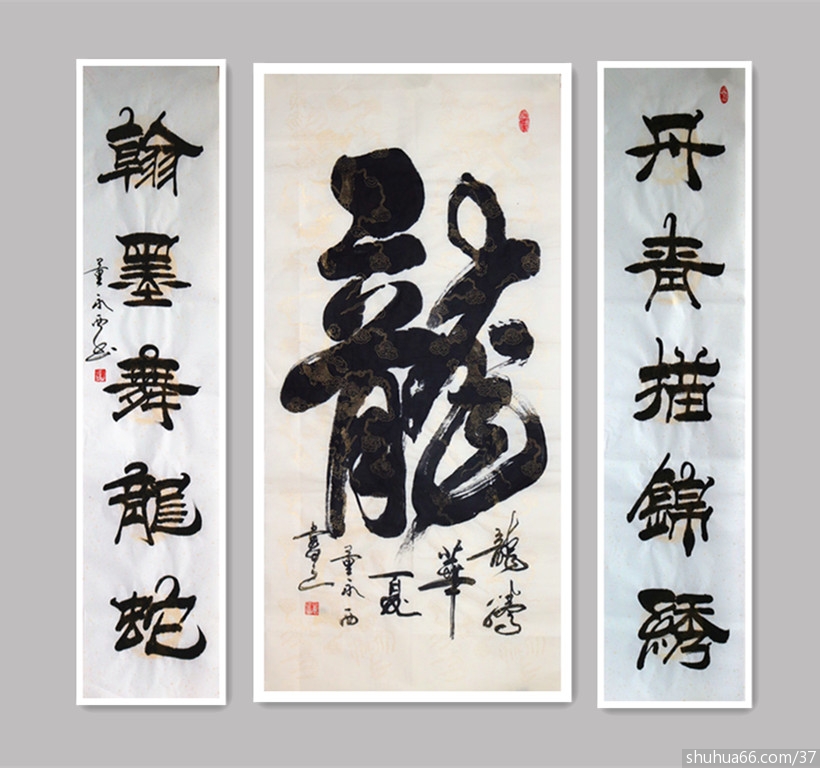 丹青描錦綉
龍
龍騰
華
夏
董永西
書
翰墨舞龍蛇
董永西書
shuhua66.com/37